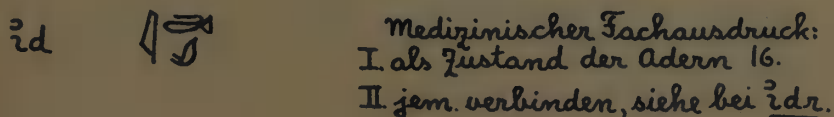 ꞽd Medizinischer Fachausdruck:
I. als Zustand der Adern 16.
II. jem. verbinden, siehe bei ꞽdr.